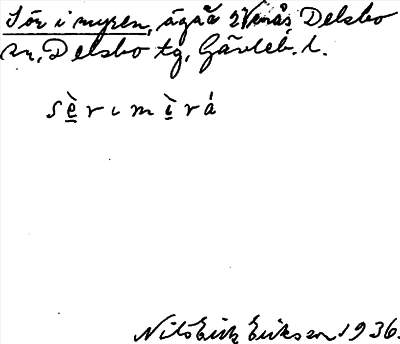 Sör i myren, ägä 2 Venås Delsbo
sn, Delsbo tg, Gävleb. l.
sè̱rımì̱rá
Nils Erik Erikson 1936.